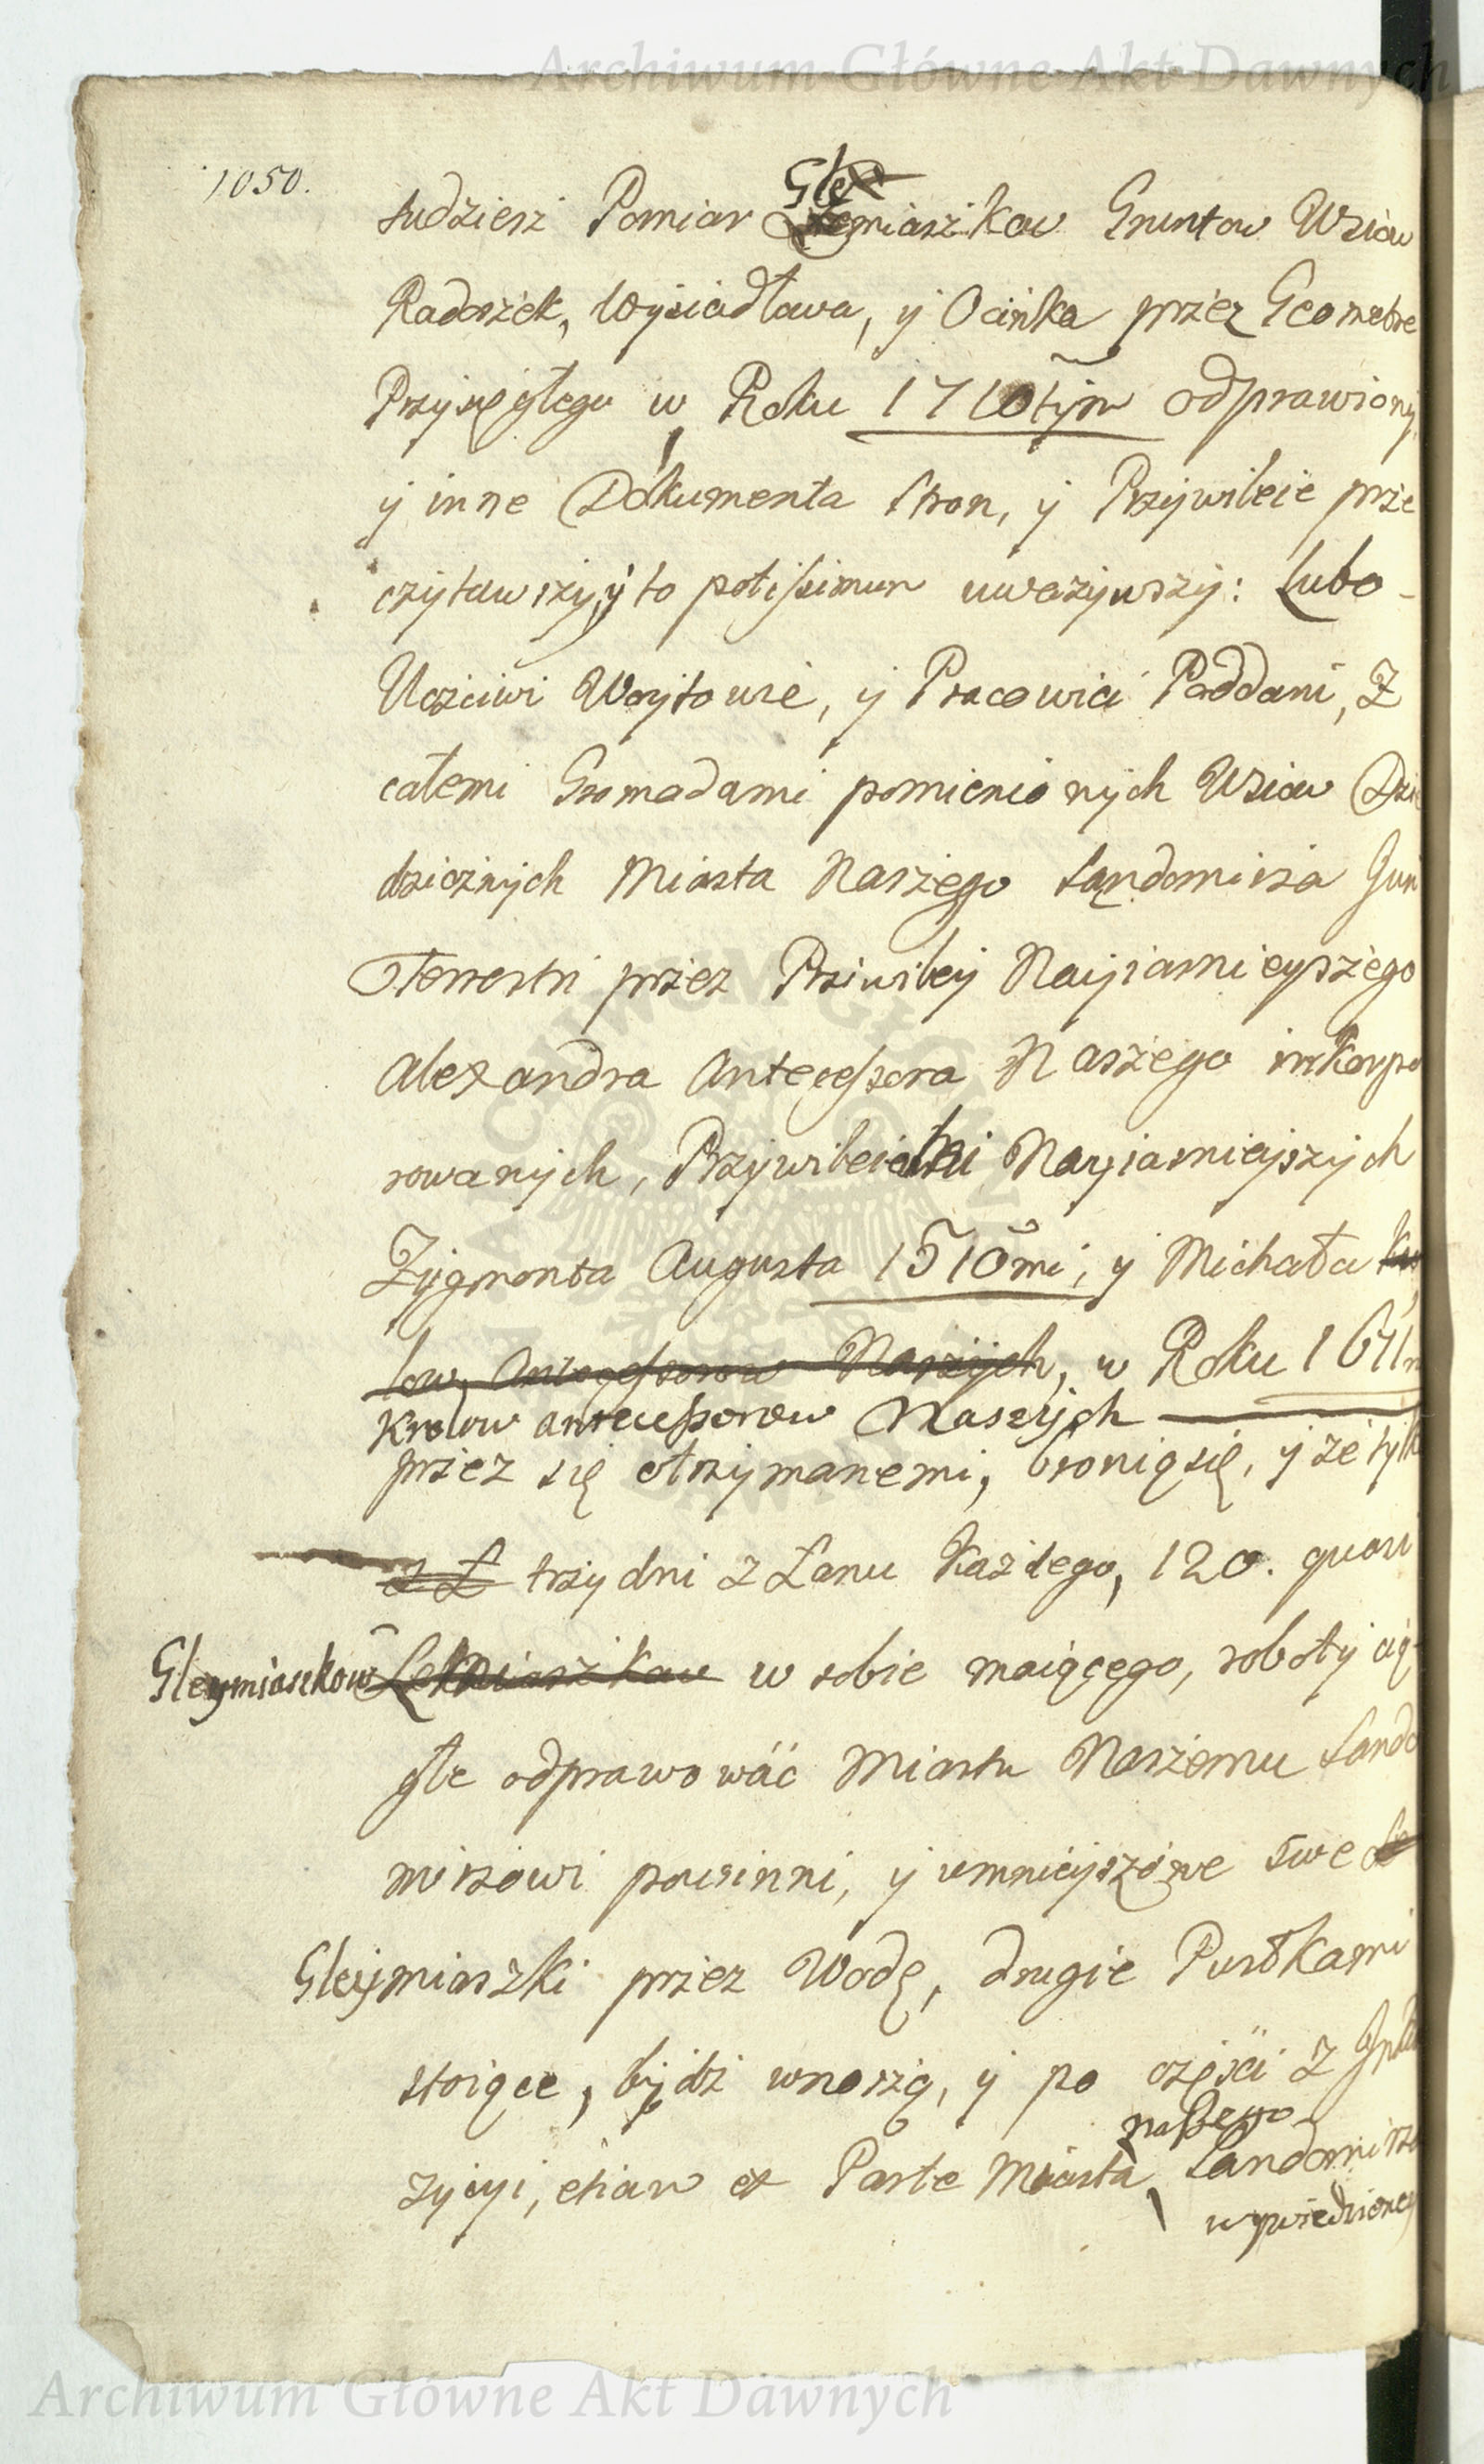 Archiwum Główne Akt Dawnych
1050.
tudziesz Pomiar Gleymiaszkow Gruntow Wsiow
Radoszek, Wysiadłowa, y Ocinka przez Geometre
Przysięgłego w Roku 1710tym odprawiony,
y inne Dokumenta Stron, y Przywileie prze
czytawszy, y to potissimum uwazywszy: Lubo
Uczciwi Woytowie, y Pracowici Poddani, z
całemi Gromadami pomienionych Wsiow Dzie
dzicznych Miasta Naszego Sandomirza Juri
Terrestri przez Przywiley Nayiasnieyszego
Alexandra Antecessora Naszego inkorpo
rowanych, Przywileiami Nayiasnieyszych
Zygmonta Augusta 1510mi, y Michała
low, Antecessorow Naszych, w Roku 1671m
Krolow antecessorow Naszych
przez się otrzymanemi, bronią się, y ze tylko
z Ł trzy dni z Łanu Kazdego, 120. quasi
Gleymiaszkow Lekmiaszkow w sobie maiącego, roboty cią-
głe odprawować Miastu Naszemu Sando
mirzowi powinni, y umnieyszone swe
Gleymiaszki przez Wodę, drugie Pustkami
stoiące, bydz wnoszą, y po częsci z
zycyi, etiam ex Parte Miasta naszego Sandomirza
wywiedzioney
Archiwum Główne Akt Dawnych